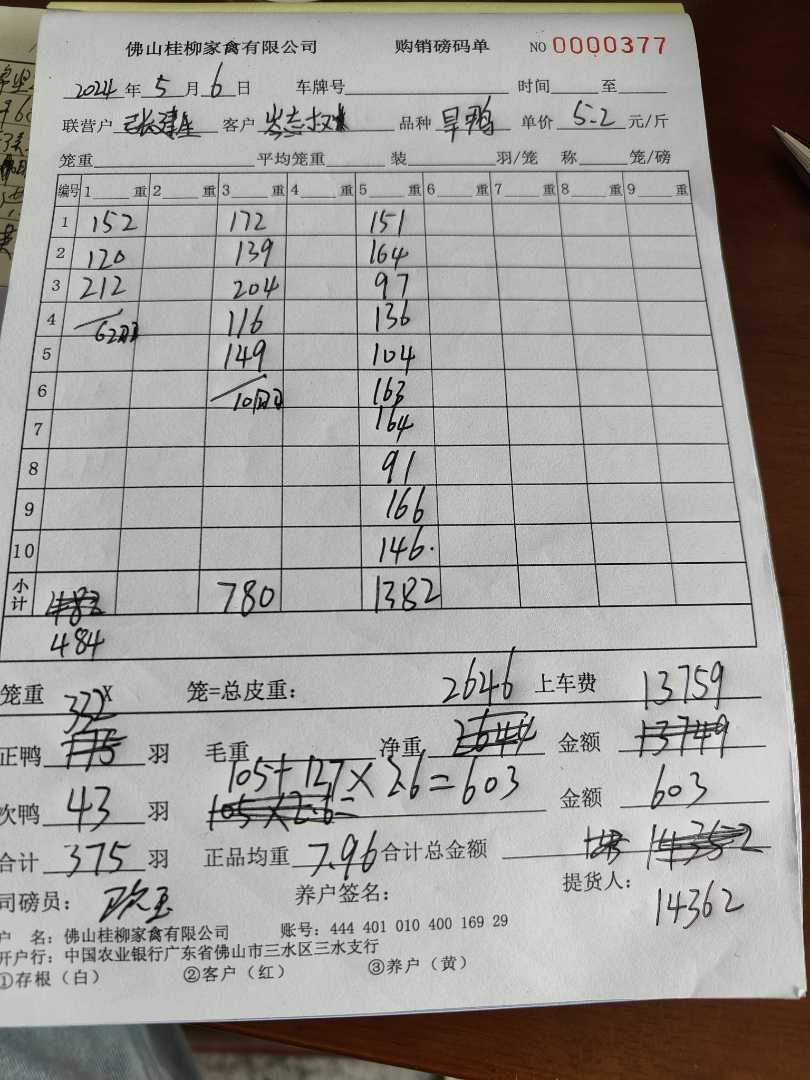 佛山桂柳家禽有限公司 购销磅码单 NO 0000377
2024年5月6日 车牌号 时间 至
联营户 张建生 客户 品种 旱鸭 单价 5.2 元/斤
笼重 平均笼重 装 羽/笼 称 笼/磅
编号 1 重 2 重 3 重 4 重 5 重 6 重 7 重 8 重 9 重
1 152 172 151
2 120 139 164
3 212 204 97
4 116 136
5 149 104
6 163
7 164
8 91
9 166
10 146.
小计 780 1382
484
笼重 X 笼=总皮重: 2646 上车费 13759
正鸭 332 羽 毛重 净重 2644 金额 13749
105+127×2.6=603
次鸭 43 羽 105×2.6= 金额 603
合计 375 羽 正品均重 7.96 合计总金额
司磅员: 养户签名: 提货人: 14362
户 名: 佛山桂柳家禽有限公司 账号: 444 401 010 400 169 29
开户行: 中国农业银行广东省佛山市三水区三水支行
①存根(白) ②客户(红) ③养户(黄)